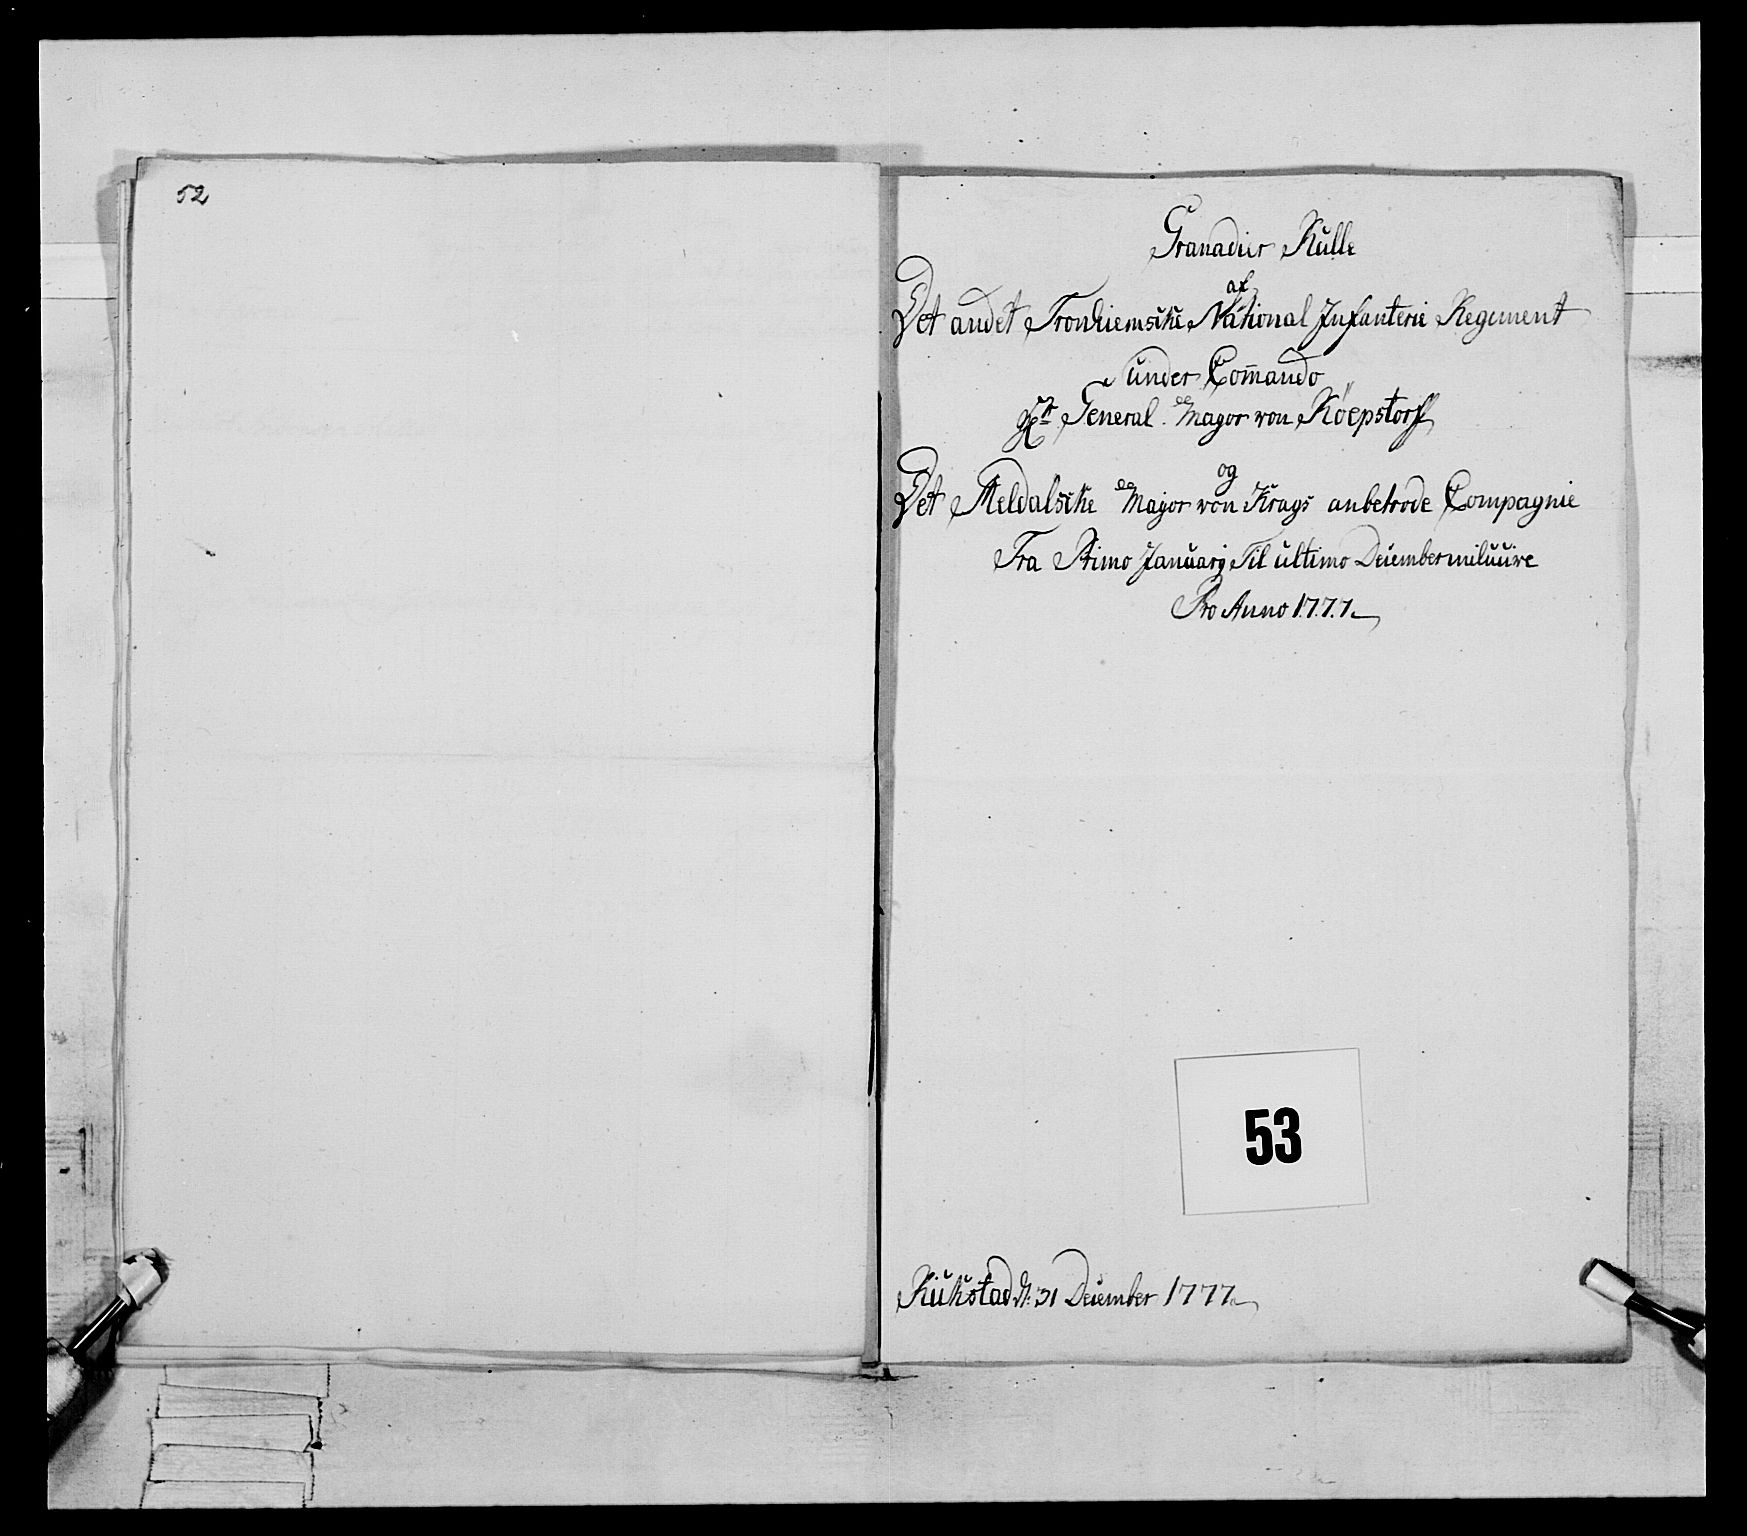 52
Granadier Rulle
af
Det andet Tronhiemske National Infanterie Regiment
under Com̄ando
Hr General Major von Köepstorff
og
Det Meldalske Major von Krags anbetrode Compagnie
Fra Primo Januarij Til ultimo December
Pro Anno 1777
53
31 December 1777